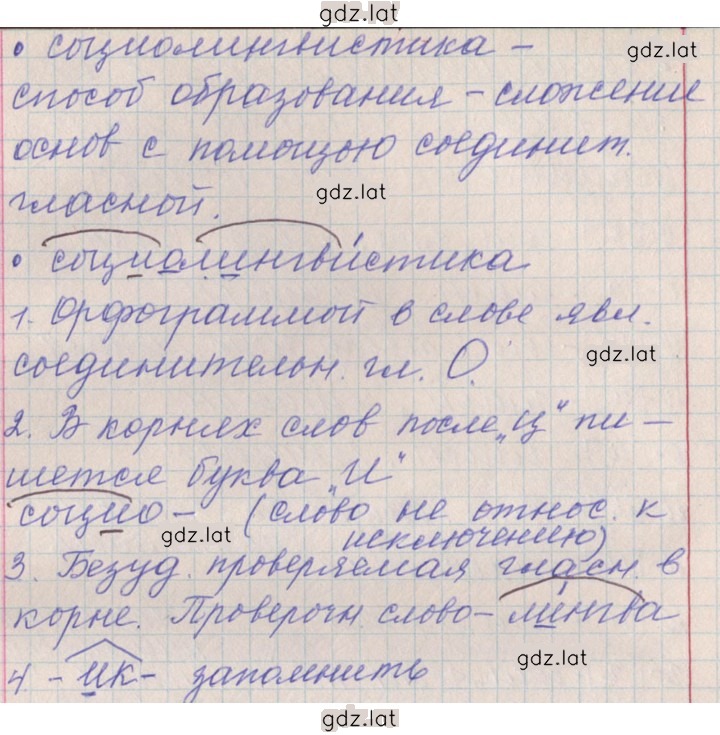 gdz.lat
• социолингвистика –
gdz.lat
способ образования – сложение
основ с помощью соединит.
гласной.
gdz.lat
• социолингвистика
1. Орфограммой в слове явл.
соединительн. гл. О.
gdz.lat
2. В корнях слов после „ц“ пи–
шется буква „И“
социо – (слово не относ. к
исключению)
gdz.lat
3. Безуд. проверяемая гласн. в
корне. Проверочн. слово – лингва
gdz.lat
4 – ик – запомнить
gdz.lat